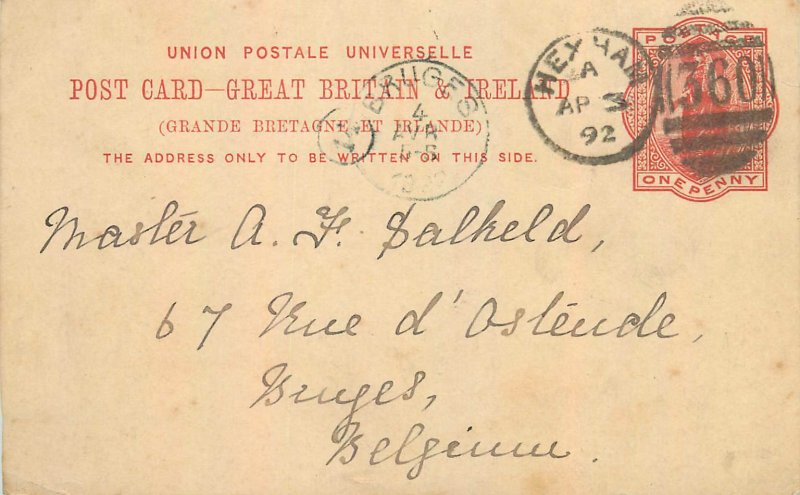 UNION POSTALE UNIVERSELLE
POST CARD—GREAT BRITAIN & IRELAND
(GRANDE BRETAGNE ET IRLANDE)
THE ADDRESS ONLY TO BE WRITTEN ON THIS SIDE.
BRUGES
4
HEXHAM
A
AP 3
92
360
POSTAGE
ONE PENNY
Master A. F. Salkeld,
67 Rue d'Ostende,
Bruges,
Belgium.